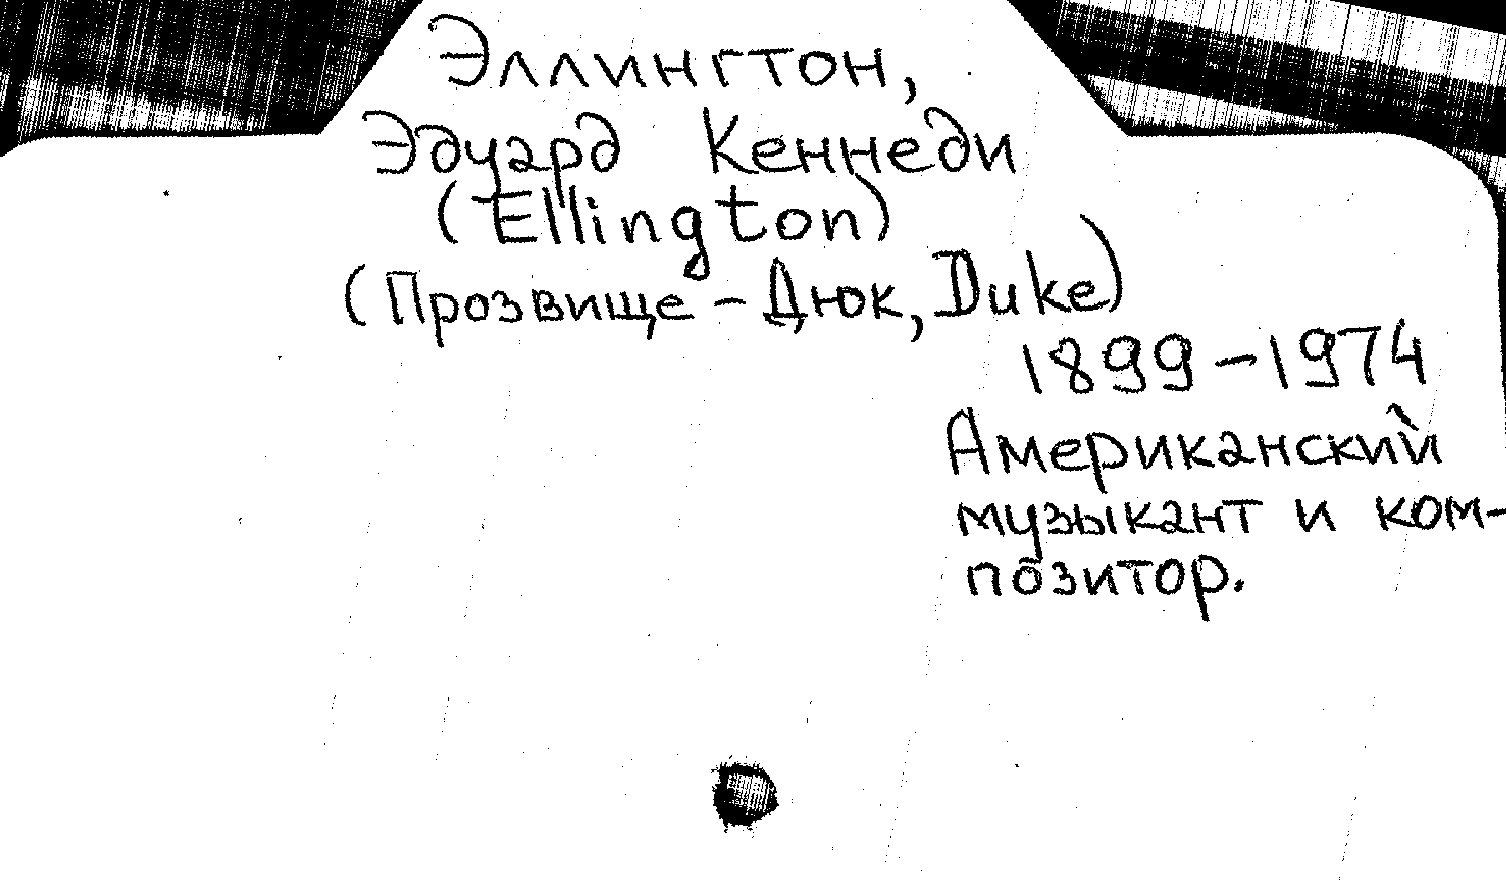 Эллингтон,
Эдуард Кеннеди
(Ellington)
(Прозвище - Дюк, Duke)
1899-1974
Американский
музыкант и ком-
позитор.